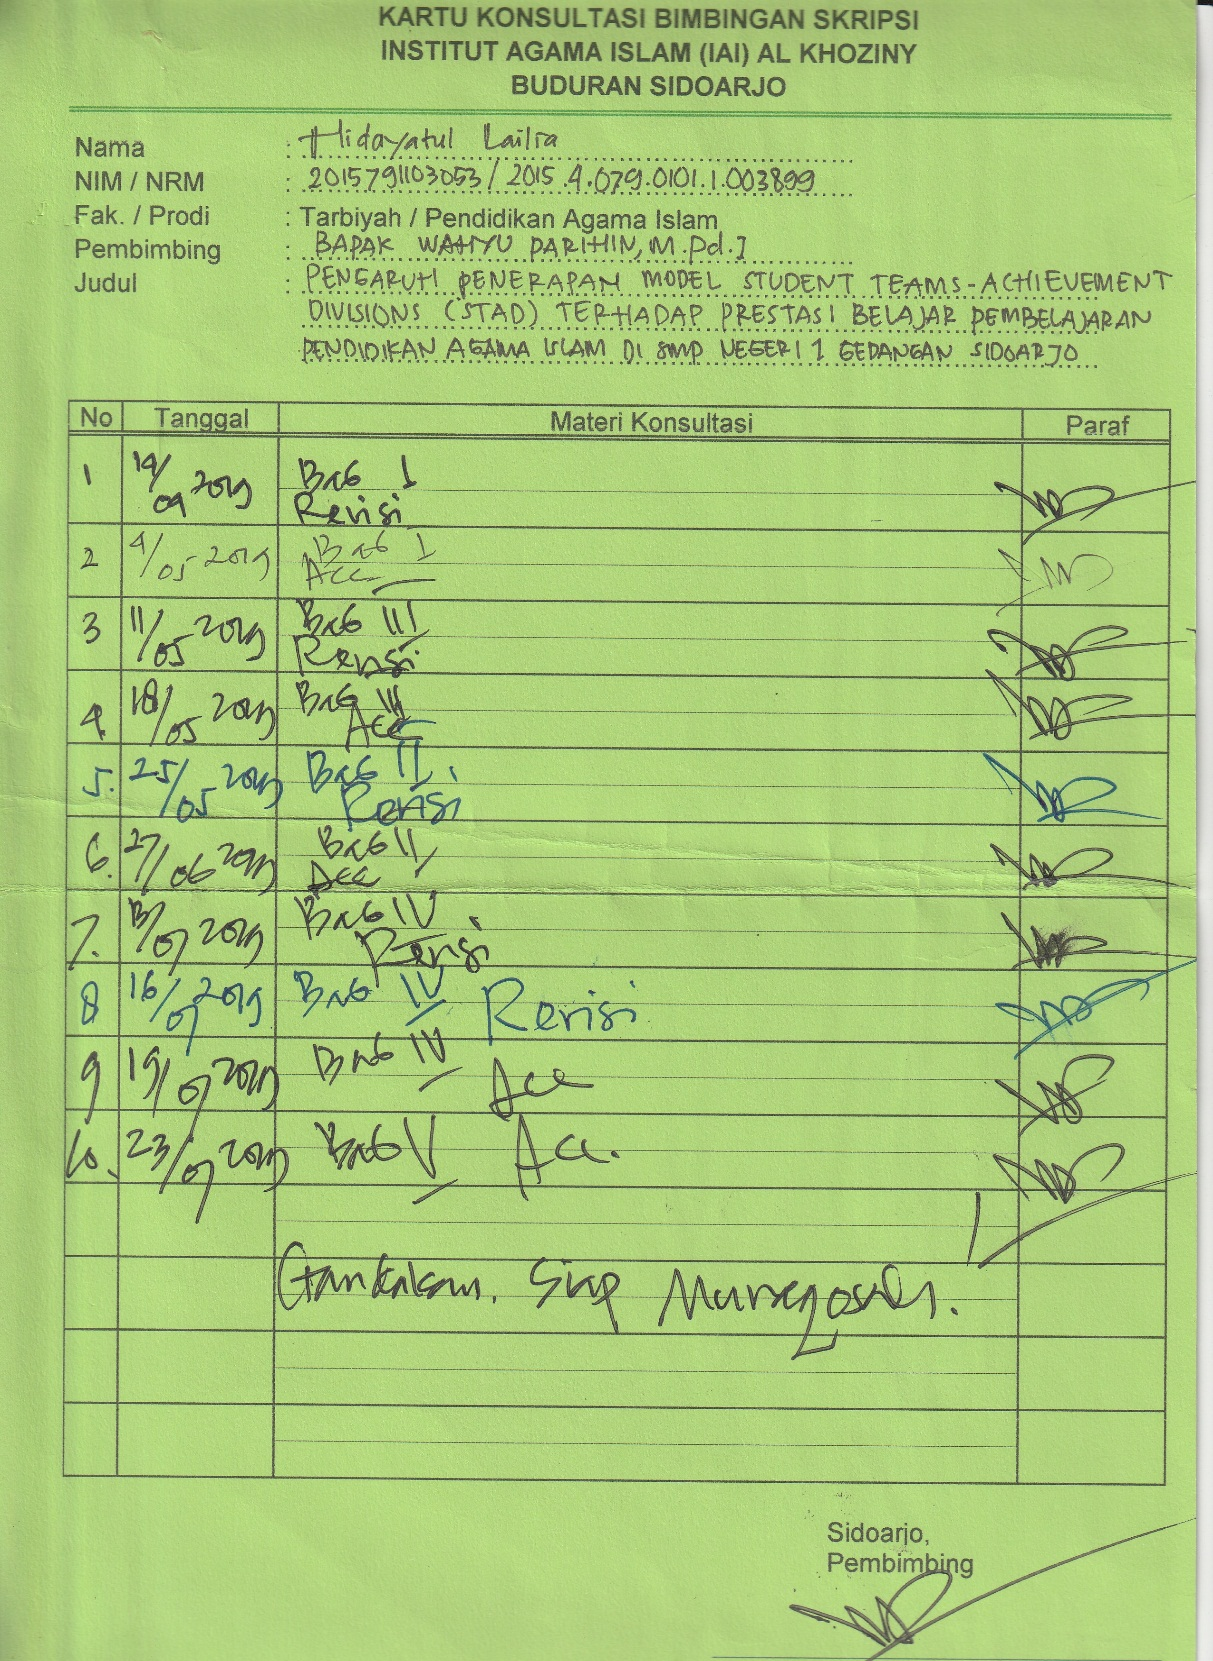 KARTU KONSULTASI BIMBINGAN SKRIPSI
INSTITUT AGAMA ISLAM (IAI) AL KHOZINY
BUDURAN SIDOARJO
Nama : Hidayatul Lailia
NIM / NRM : 2015791103053 / 2015.4.079.0101.1.003899
Fak. / Prodi : Tarbiyah / Pendidikan Agama Islam
Pembimbing : BAPAK WAHYU PARIHIN, M.Pd.I
Judul : PENGARUH PENERAPAN MODEL STUDENT TEAMS-ACHIEVEMENT
DIVISIONS (STAD) TERHADAP PRESTASI BELAJAR PEMBELAJARAN
PENDIDIKAN AGAMA ISLAM DI SMP NEGERI 1 GEDANGAN SIDOARJO
No Tanggal Materi Konsultasi Paraf
1 2019 Bab I
Revisi
2 4/05 2019 Bab I
Acc
3 11/05 2019 Bab III
Revisi
4. 18/05 2019 Bab III
Acc
5. 25/05 2019 Bab II
Revisi
6. 27/06 2019 Bab II
Acc
7. 13/07 2019 Bab IV
Revisi
8 16/07 2019 Bab IV Revisi
9 19/07 2019 Bab IV Acc
10. 23/07 2019 Bab V Acc.
Gandakan. Siap Munaqosah.
Sidoarjo,
Pembimbing